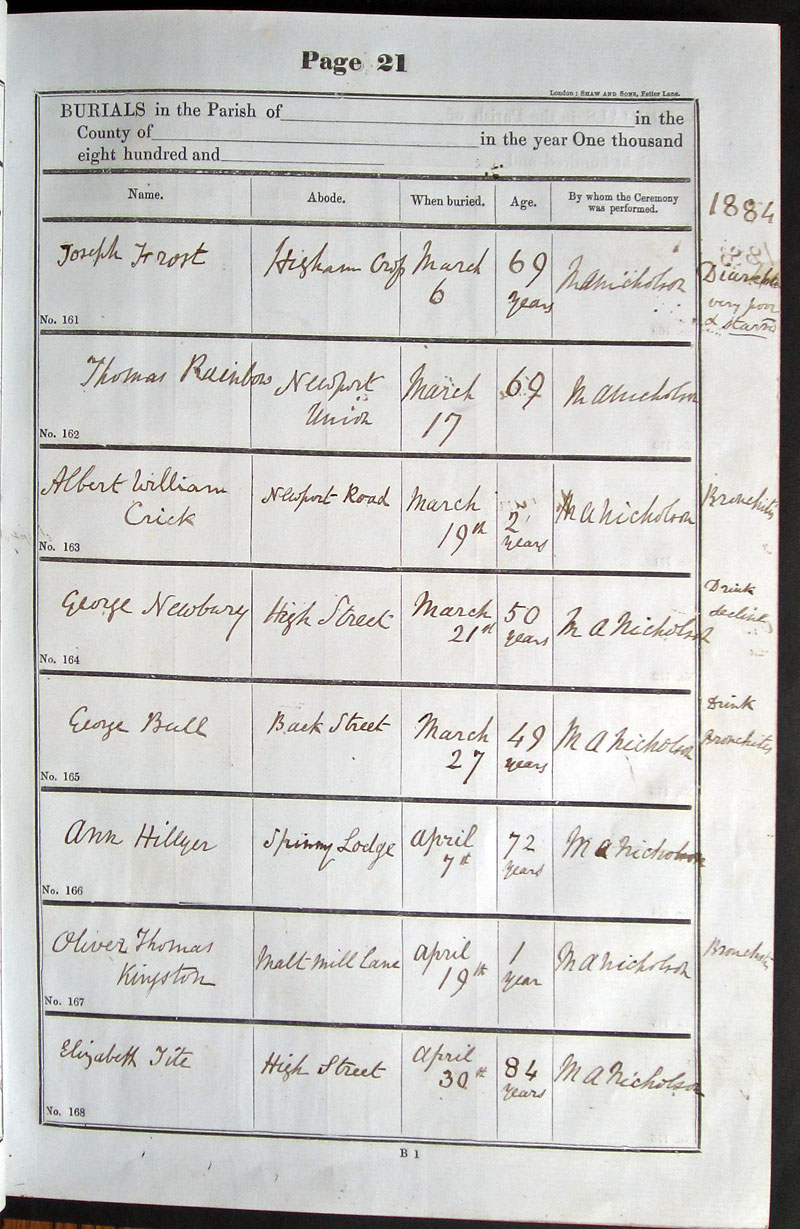 Page 21
London: SHAW AND SONS, Fetter Lane.
BURIALS in the Parish of in the
County of in the year One thousand
eight hundred and
Name. Abode. When buried. Age. By whom the Ceremony was performed.
1884
Joseph Frost Higham March 6 69 years M A Nicholson
very poor
& starved
No. 161
Thomas Rainbow Newport Union March 17 69 M A Nicholson
No. 162
Albert William Crick Newport Road March 19th 2 years M A Nicholson Bronchitis
No. 163
George Newbury High Street March 21st 50 years M A Nicholson Drink decline
No. 164
George Bull Back Street March 27 49 years M A Nicholson Drink Bronchitis
No. 165
Ann Hillyer Spinny Lodge April 7th 72 years M A Nicholson
No. 166
Oliver Thomas Kingston Malt Mill Lane April 19th 1 year M A Nicholson Bronchitis
No. 167
Elizabeth Tite High Street April 30th 84 years M A Nicholson
No. 168
B 1